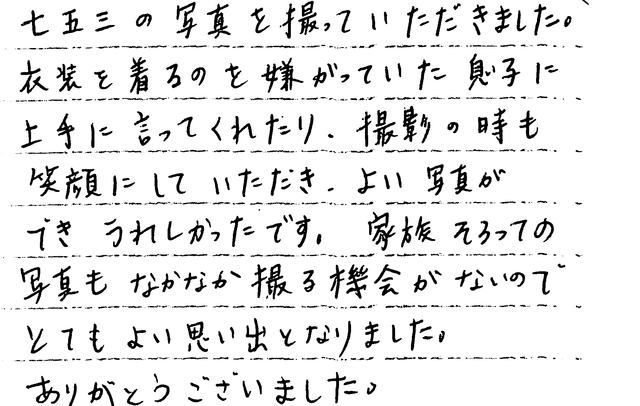 七五三の写真を撮っていただきました。
衣装を着るのを嫌がっていた息子に
上手に言ってくれたり、撮影の時も
笑顔にしていただき、よい写真が
でき うれしかったです。家族そろっての
写真もなかなか撮る機会がないので
とてもよい思い出となりました。
ありがとうございました。